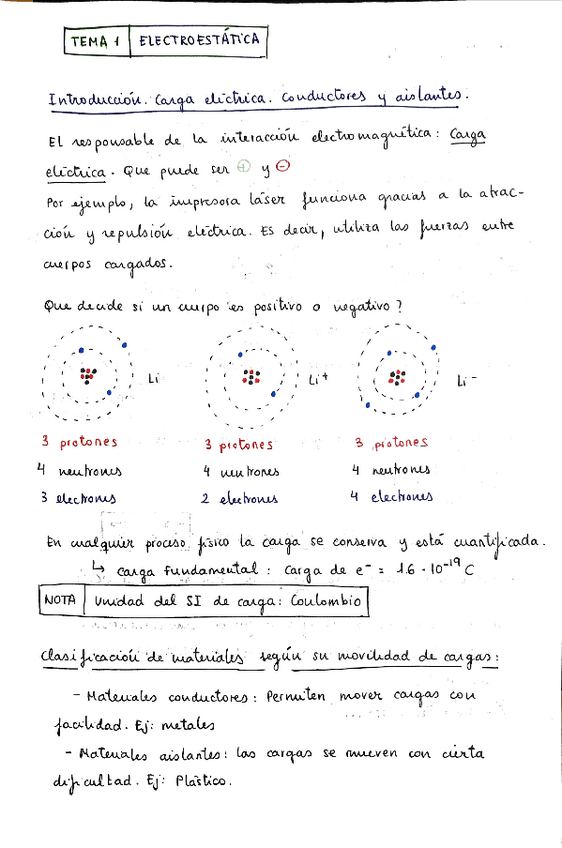 TEMA 1 ELECTROESTÁTICA
Introducción. Carga eléctrica. Conductores y aislantes.
El responsable de la interacción electromagnética: Carga
eléctrica. Que puede ser + y -
Por ejemplo, la impresora láser funciona gracias a la atrac-
ción y repulsión eléctrica. Es decir, utiliza las fuerzas entre
cuerpos cargados.
Que decide si un cuerpo es positivo o negativo?
Li Li+ Li-
3 protones 3 protones 3 protones
4 neutrones 4 neutrones 4 neutrones
3 electrones 2 electrones 4 electrones
En cualquier proceso físico la carga se conserva y está cuantificada.
↳ Carga fundamental: Carga de e⁻ = 1.6 · 10⁻¹⁹ C
NOTA Unidad del SI de carga: Coulombio
Clasificación de materiales según su movilidad de cargas:
- Materiales conductores: Permiten mover cargas con
facilidad. Ej: metales
- Materiales aislantes: las cargas se mueven con cierta
dificultad. Ej: Plástico.